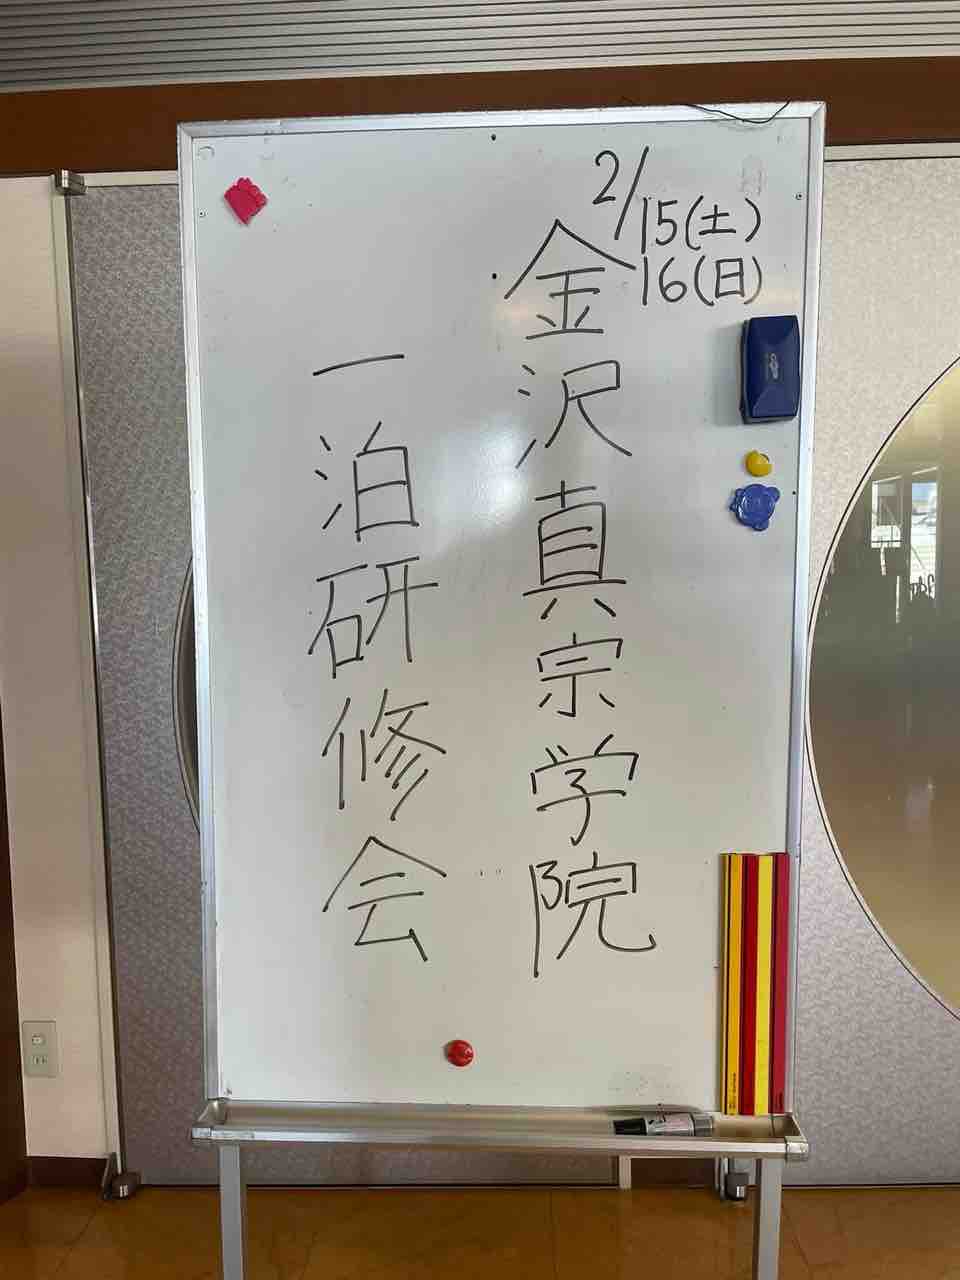 2/15(土)
16(日)
金沢真宗学院
一泊研修会